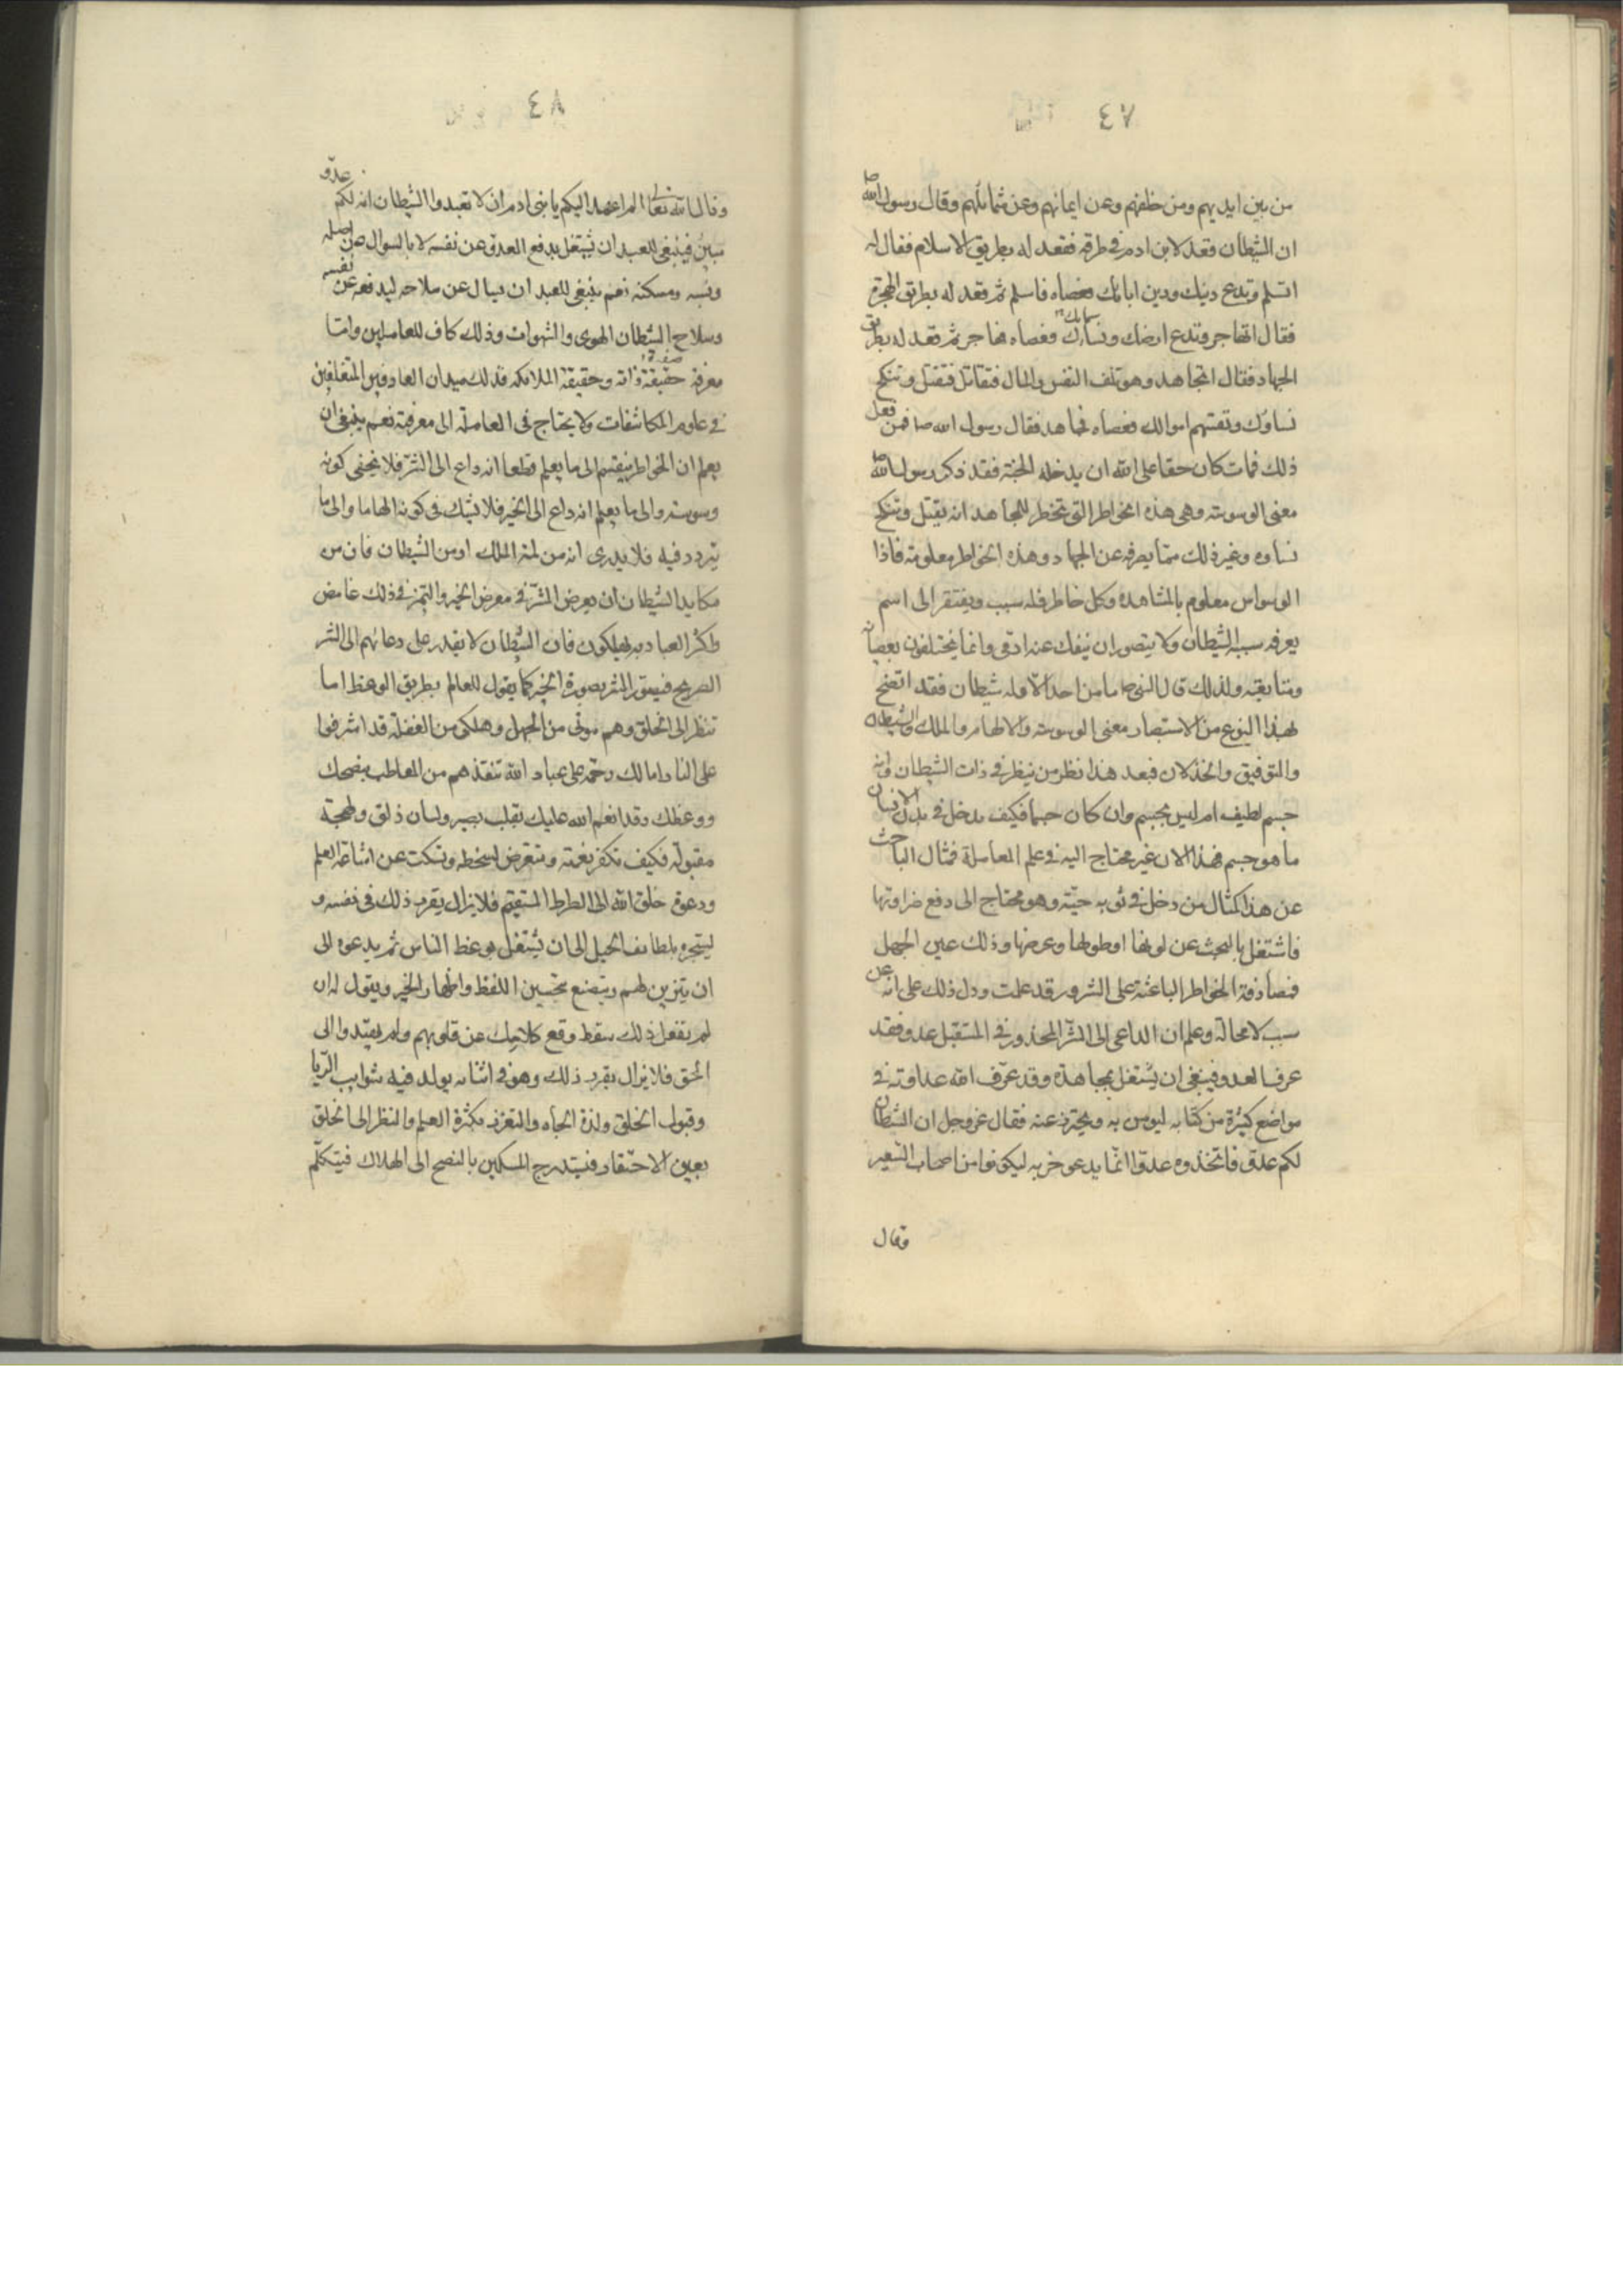 ٤٧
من بين ايديهم ومن خلفهم وعن ايمانهم وعن شمائلهم وقال رسول الله ص
ان الشيطان قعد لابن ادم في طرقه فقعد له بطريق الاسلام فقال له
اتسلم وتدع دينك ودين ابائك فعصاه فاسلم ثم قعد له بطريق الهجرة
فقال اتهاجر وتدع ارضك ونساءك سماءك فعصاه فهاجر ثم قعد له بطريق
الجهاد فقال اتجاهد وهو تلف النفس والمال فتقاتل فتقتل وتنكح
نساؤك وتقسم اموالك فعصاه فجاهد فقال رسول الله ص فمن فعل
ذلك فمات كان حقا على الله ان يدخله الجنة فقد ذكر رسول الله ص
معنى الوسوسة وهي هذه الخواطر التي تخطر للمجاهد انه يقتل وتنكح
نساوه وغير ذلك مما يصرفه عن الجهاد وهذه الخواطر معلومة فاذا
الوسواس معلوم بالمشاهدة وكل خاطر فله سبب ويفتقر الى اسم
يعرفه سببه الشيطان ولا يتصور ان ينفك عنه ادمي وانما يختلفون بعصيانه
ومتابعته ولذلك قال النبي ص ما من احد الا وله شيطان فقد اتضح
بهذا النوع من الاستبصار معنى الوسوسة والالهام والملك والشيطان
والتوفيق والخذلان فبعد هذا نظر من ينظر في ذات الشيطان وانه
جسم لطيف ام ليس بجسم وان كان جسما فكيف يدخل في بدن الانسان
ما هو جسم فهذا الان غير محتاج اليه في علم المعاملة فمثال الباحث
عن هذا كمثال من دخل في ثوبه حيّة وهو محتاج الى دفع ضراوتها
فاشتغل بالبحث عن لونها او طولها وعرضها وذلك عين الجهل
فمصادفة الخواطر الباعثة على الشرور قد علمت ودل ذلك على انه عن
سبب لا محالة وعلم ان الداعى الى الشرّ المحذور في المستقبل عدو فقد
عرف العدو فينبغى ان يشتغل بمجاهدة وقد عرّف الله عداوته في
مواضع كثيرة من كتابه ليومن به ويحترز عنه فقال عز وجل ان الشيطان
لكم عدوّ فاتخذوه عدوّا انّما يدعو حزبه ليكونوا من اصحاب السّعير
وقال
٤٨
وقال الله تعا الم اعهد اليكم يا بنى ادم ان لا تعبدوا الشيطان انه لكم عدوّ
مبين فينبغى للعبد ان يشتغل بدفع العدوّ عن نفسه لا بالسوال عن اصله
ونسبه ومسكنه نعم ينبغى للعبد ان يسال عن سلاحه ليدفعه عن نفسه
وسلاح الشيطان الهوى والشهوات وذلك كاف للعاملين وامّا
معرفة حقيقة ذاته وحقيقة الملائكه فذلك ميدان العارفين المتغلغلين
في علوم المكاشفات ولا يحتاج في المعاملة الى معرفته نعم ينبغى ان
يعلم ان الخواطر ينقسم الى ما يعلم قطعا انه داع الى الشرّ فلا يخفى كونه
وسوسته والى ما يعلم انه داع الى الخير فلا يشك في كونه الهاما والى ما
يتردد فيه فلا يدرى انه من لمة الملك او من الشيطان فان من
مكايد الشيطان ان يعرض الشرّ في معرض الخير والتميز في ذلك غامض
واكثر العباد به يهلكون فان الشيطان لا يقدر على دعائهم الى الشر
الصريح فيصوّر الشر بصورة الخير كما يقول للعالم بطريق الوعظ اما
تنظر الى الخلق وهم موتى من الجهل وهلكى من الغفلة قد اشرفوا
على النار اما لك رحمة على عباد الله تنقذهم من المعاطب بنصحك
ووعظك وقد انعم الله عليك بقلب بصير ولسان ذلق ولهجة
مقبولة فكيف تكفر نعمته وتتعرض لسخطه وتسكت عن اشاعة العلم
ودعوة خلق الله الى الصراط المستقيم فلا يزال يقرر ذلك في نفسه و
يستجره بلطايف الحيل الى ان يشتغل بوعظ الناس ثم يدعوه الى
ان يتزين لهم ويتصنع بتحسين اللفظ واظهار الخير ويقول له ان
لم يفعل ذلك سقط وقع كلامك عن قلوبهم ولم يهتدوا الى
الحق فلا يزال يقرر ذلك وهو في اثنائه يولد فيه شوايب الرّيا
وقبول الخلق ولذة الجاه والتعزز بكثرة العلم والنظر الى الخلق
بعين الاحتقار فيستدرج المسكين بالنصح الى الهلاك فيتكلّم